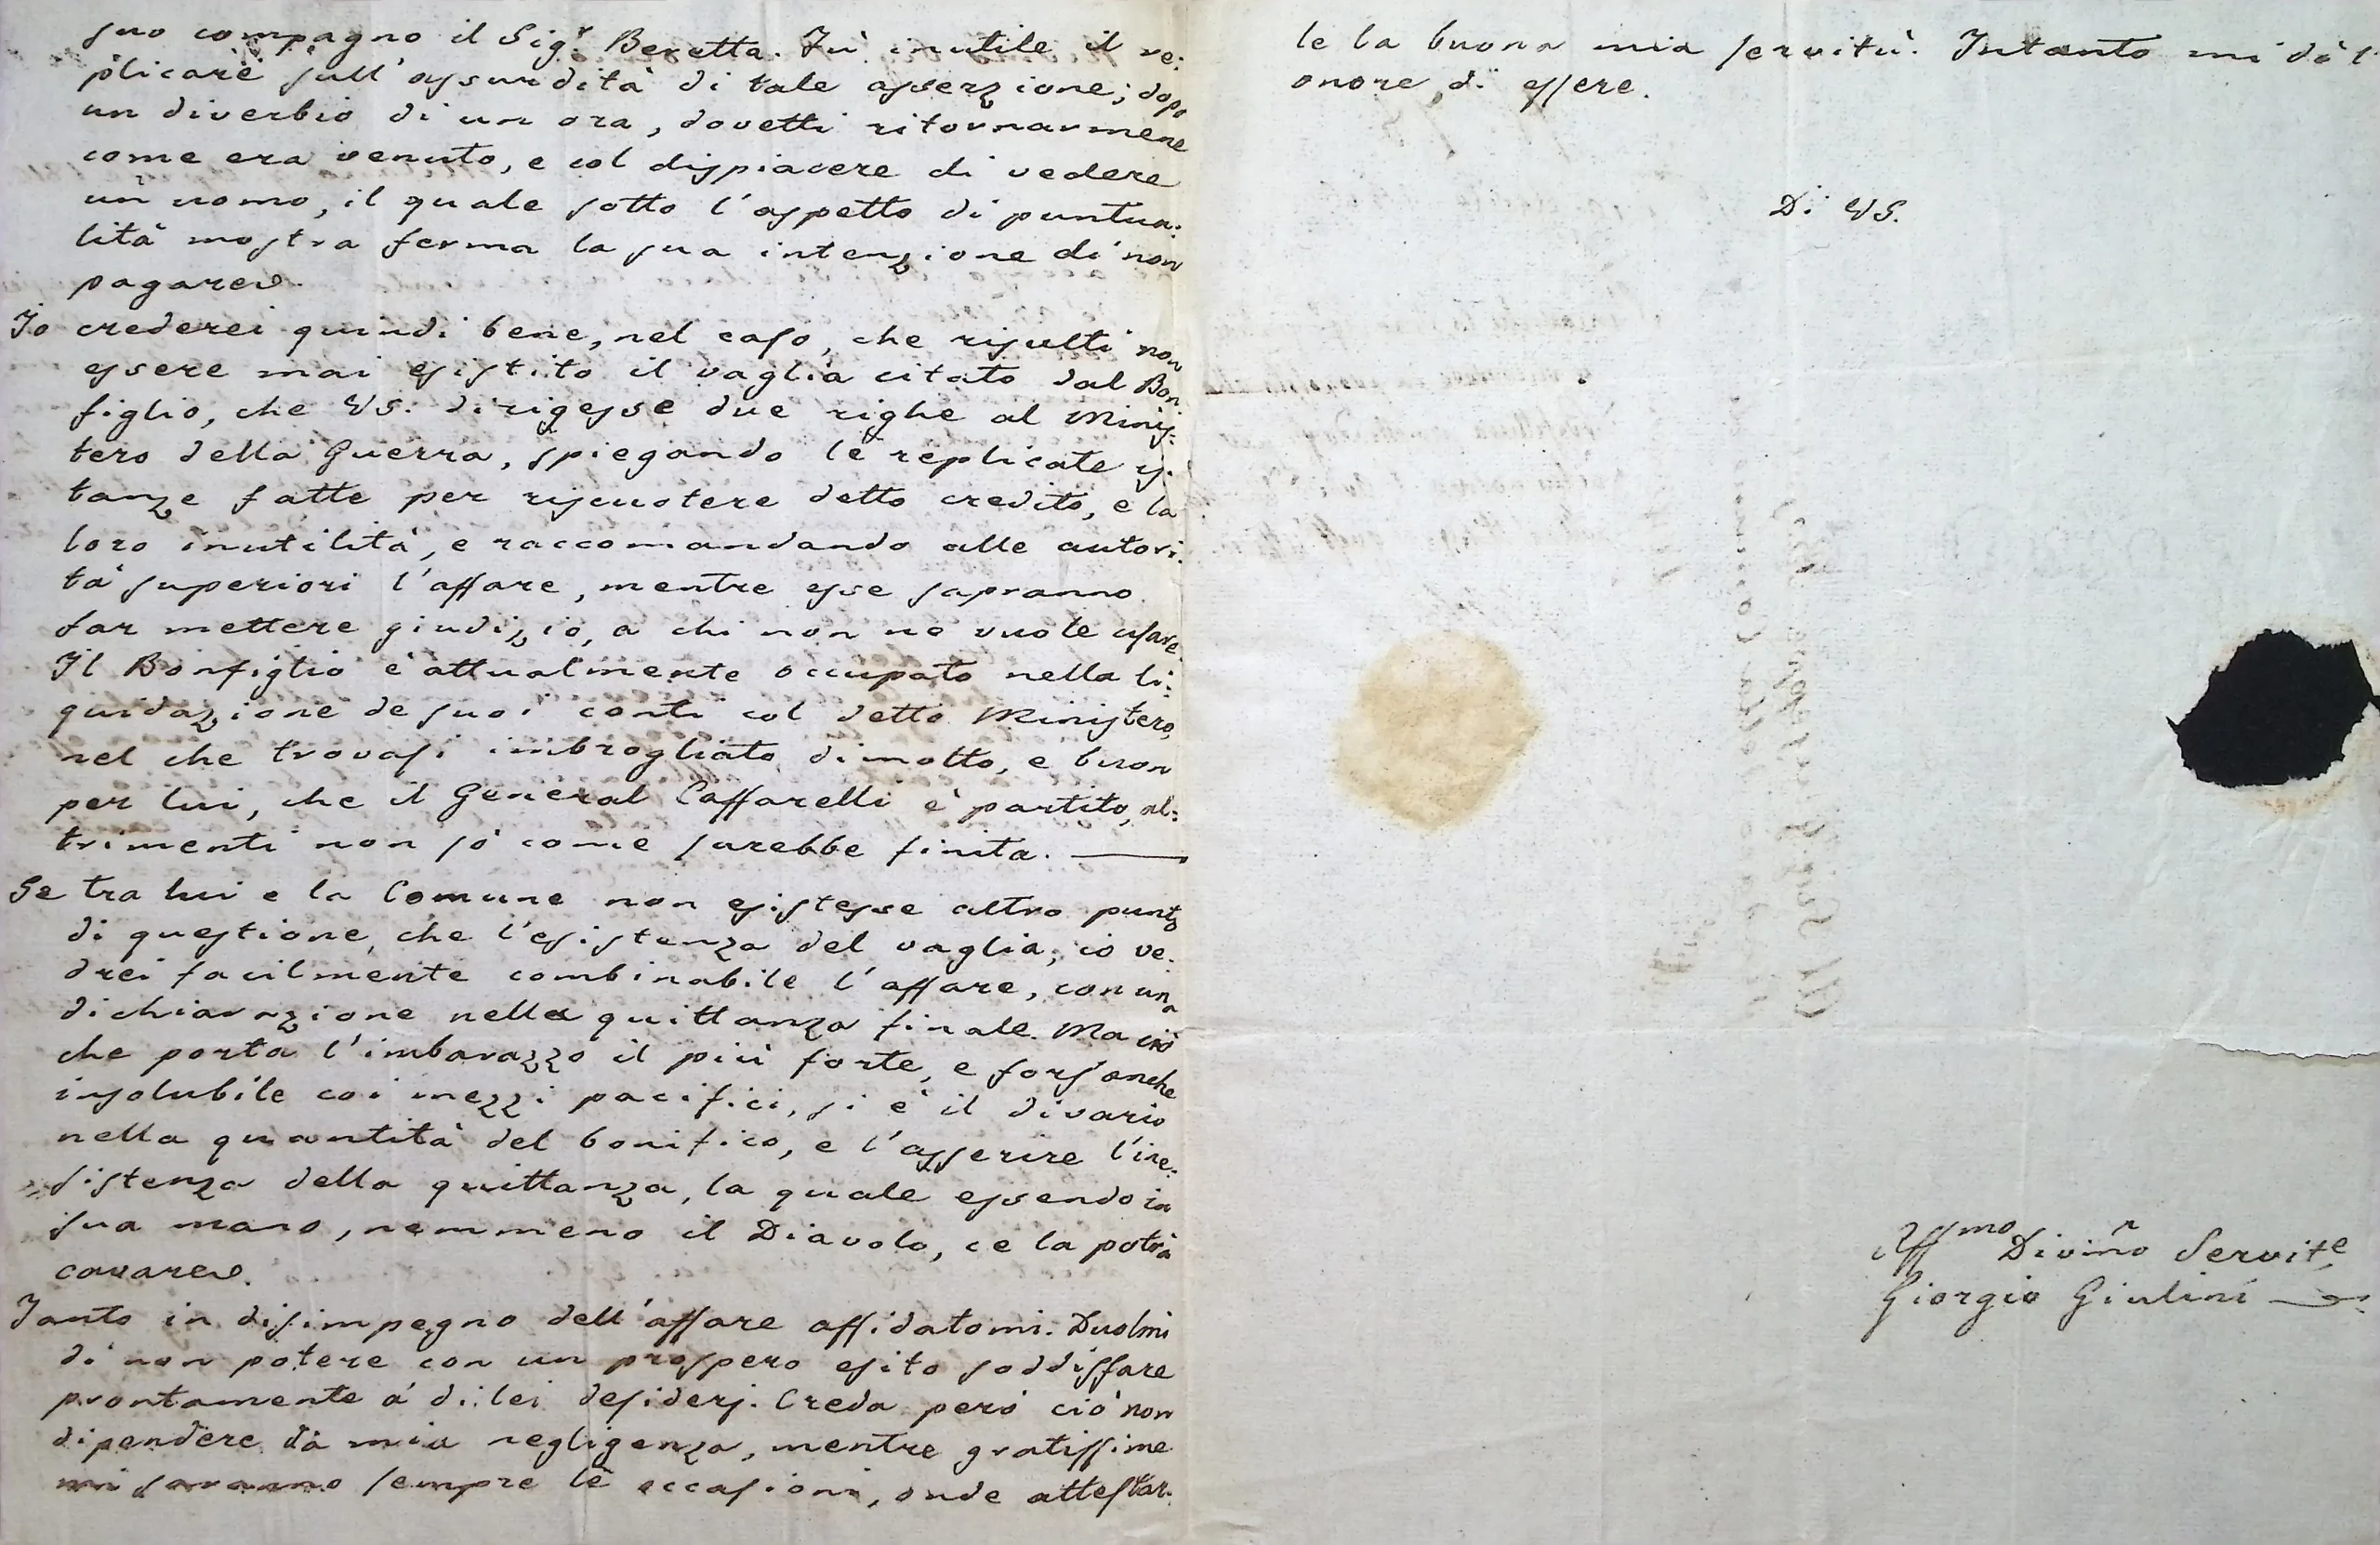 suo compagno il Sig.r Beretta. Fù inutile il re:
plicare sull'assurdità di tale asserzione; dopo
un diverbio di un ora, dovetti ritornarmene
come era venuto, e col dispiacere di vedere
un uomo, il quale sotto l'aspetto di puntua:
lità mostra ferma la sua intenzione di non
pagare.
Io crederei quindi bene, nel caso, che risulti non
essere mai esistito il vaglia citato dal Bon:
figlio, che VS. dirigesse due righe al Minis:
tero della Guerra, spiegando le replicate is:
tanze fatte per riscuotere detto credito, e la
loro inutilità, e raccomandando alle autori:
tà superiori l'affare, mentre esse sapranno
far mettere giudizio, a chi non ne vuole usare.
Il Bonfiglio è attualmente occupato nella li:
quidazione de suoi conti col detto Ministero,
nel che trovasi imbrogliato di molto, e buon
per lui, che il General Caffarelli è partito, al:
trimenti non sò come sarebbe finita.
Se tra lui e la Comune non esistesse altro punto
di questione, che l'esistenza del vaglia, io ve:
drei facilmente combinabile l'affare, con una
dichiarazione nella quittanza finale. Ma ciò
che porta l'imbarazzo il più forte, e fors'anche
insolubile coi mezzi pacifici, si è il divario
nella quantità del bonifico, e l'asserire l'ine:
sistenza della quittanza, la quale essendo in
sua mano, nemmeno il Diavolo, ce la potrà
cavare.
Tanto in disimpegno dell'affare affidatomi. Duolmi
di non potere con un prospero esito soddisfare
prontamente à di lei desiderj. Creda però ciò non
dipendere dà mia negligenza, mentre gratissime
mi saranno sempre le occasioni, onde attestar:
le la buona mia servitù. Intanto mi dò l'
onore di essere.
Di VS.
Aff.mo Servit.e
Giorgio Giulini